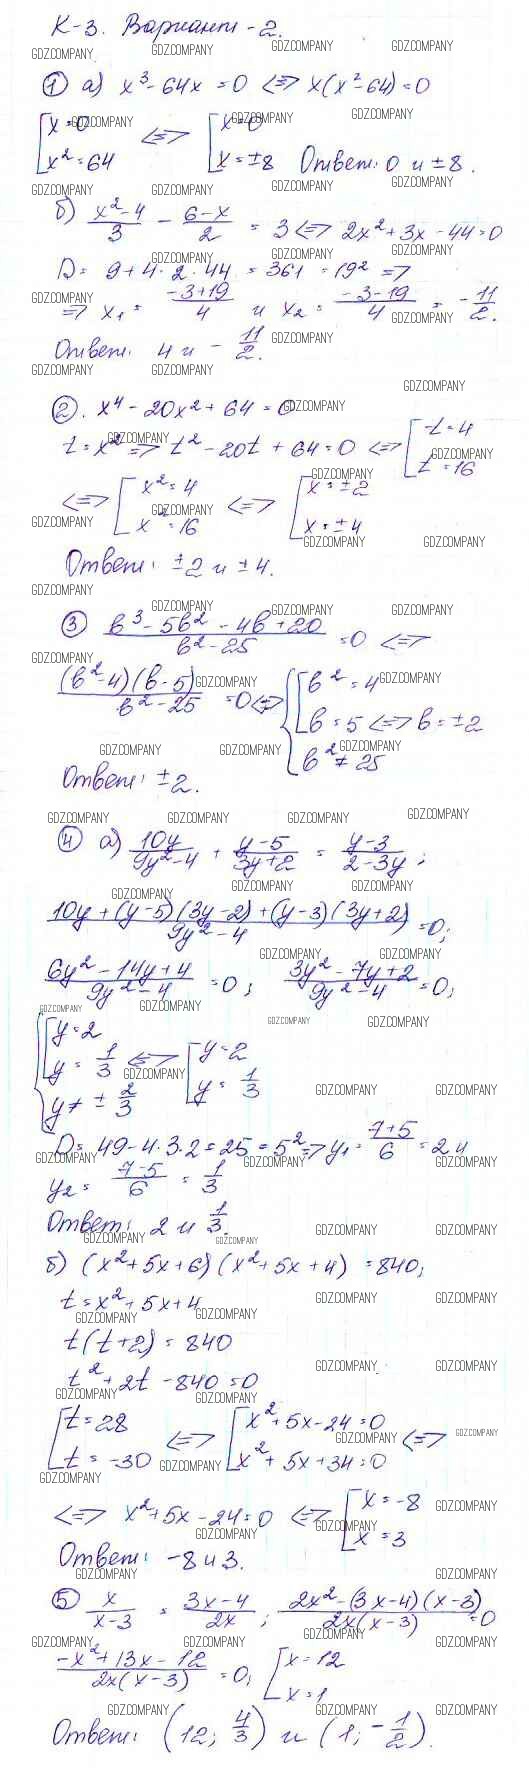 К-3. Вариант-2.
① а) x³ - 64x = 0 <=> x(x² - 64) = 0
[x = 0 <=> [x = 0
x² = 64 x = ±8 Ответ: 0 и ±8.
б) (x² - 4)/3 - (6 - x)/2 = 3 <=> 2x² + 3x - 44 = 0
D = 9 + 4 · 2 · 44 = 361 = 19² =>
=> x₁ = (-3 + 19)/4 и x₂ = (-3 - 19)/4 = -11/2.
Ответ: 4 и -11/2.
②. x⁴ - 20x² + 64 = 0
t = x² => t² - 20t + 64 = 0 <=> [t = 4
t = 16
<=> [x² = 4 <=> [x = ±2
x² = 16 x = ±4
Ответ: ±2 и ±4.
③ (b³ - 5b² - 4b + 20)/(b² - 25) = 0 <=>
((b² - 4)(b - 5))/(b² - 25) = 0 <=> {[b² = 4
b = 5 <=> b = ±2
b² ≠ 25
Ответ: ±2.
④ а) 10y/(9y² - 4) + (y - 5)/(3y + 2) = (y - 3)/(2 - 3y);
(10y + (y - 5)(3y - 2) + (y - 3)(3y + 2))/(9y² - 4) = 0;
(6y² - 14y + 4)/(9y² - 4) = 0; (3y² - 7y + 2)/(9y² - 4) = 0;
{[y = 2
y = 1/3 <=> [y = 2
y ≠ ±2/3 y = 1/3
D = 49 - 4 · 3 · 2 = 25 = 5² => y₁ = (7 + 5)/6 = 2 и
y₂ = (7 - 5)/6 = 1/3
Ответ: 2 и 1/3.
б) (x² + 5x + 6)(x² + 5x + 4) = 840;
t = x² + 5x + 4
t(t + 2) = 840
t² + 2t - 840 = 0
[t = 28 <=> [x² + 5x - 24 = 0 <=>
t = -30 x² + 5x + 34 = 0
<=> x² + 5x - 24 = 0 <=> [x = -8
x = 3
Ответ: -8 и 3.
⑤ x/(x - 3) = (3x - 4)/2x; (2x² - (3x - 4)(x - 3))/(2x(x - 3)) = 0
(-x² + 13x - 12)/(2x(x - 3)) = 0; [x = 12
x = 1
Ответ: (12; 4/3) и (1; -1/2).
GDZ.COMPANY